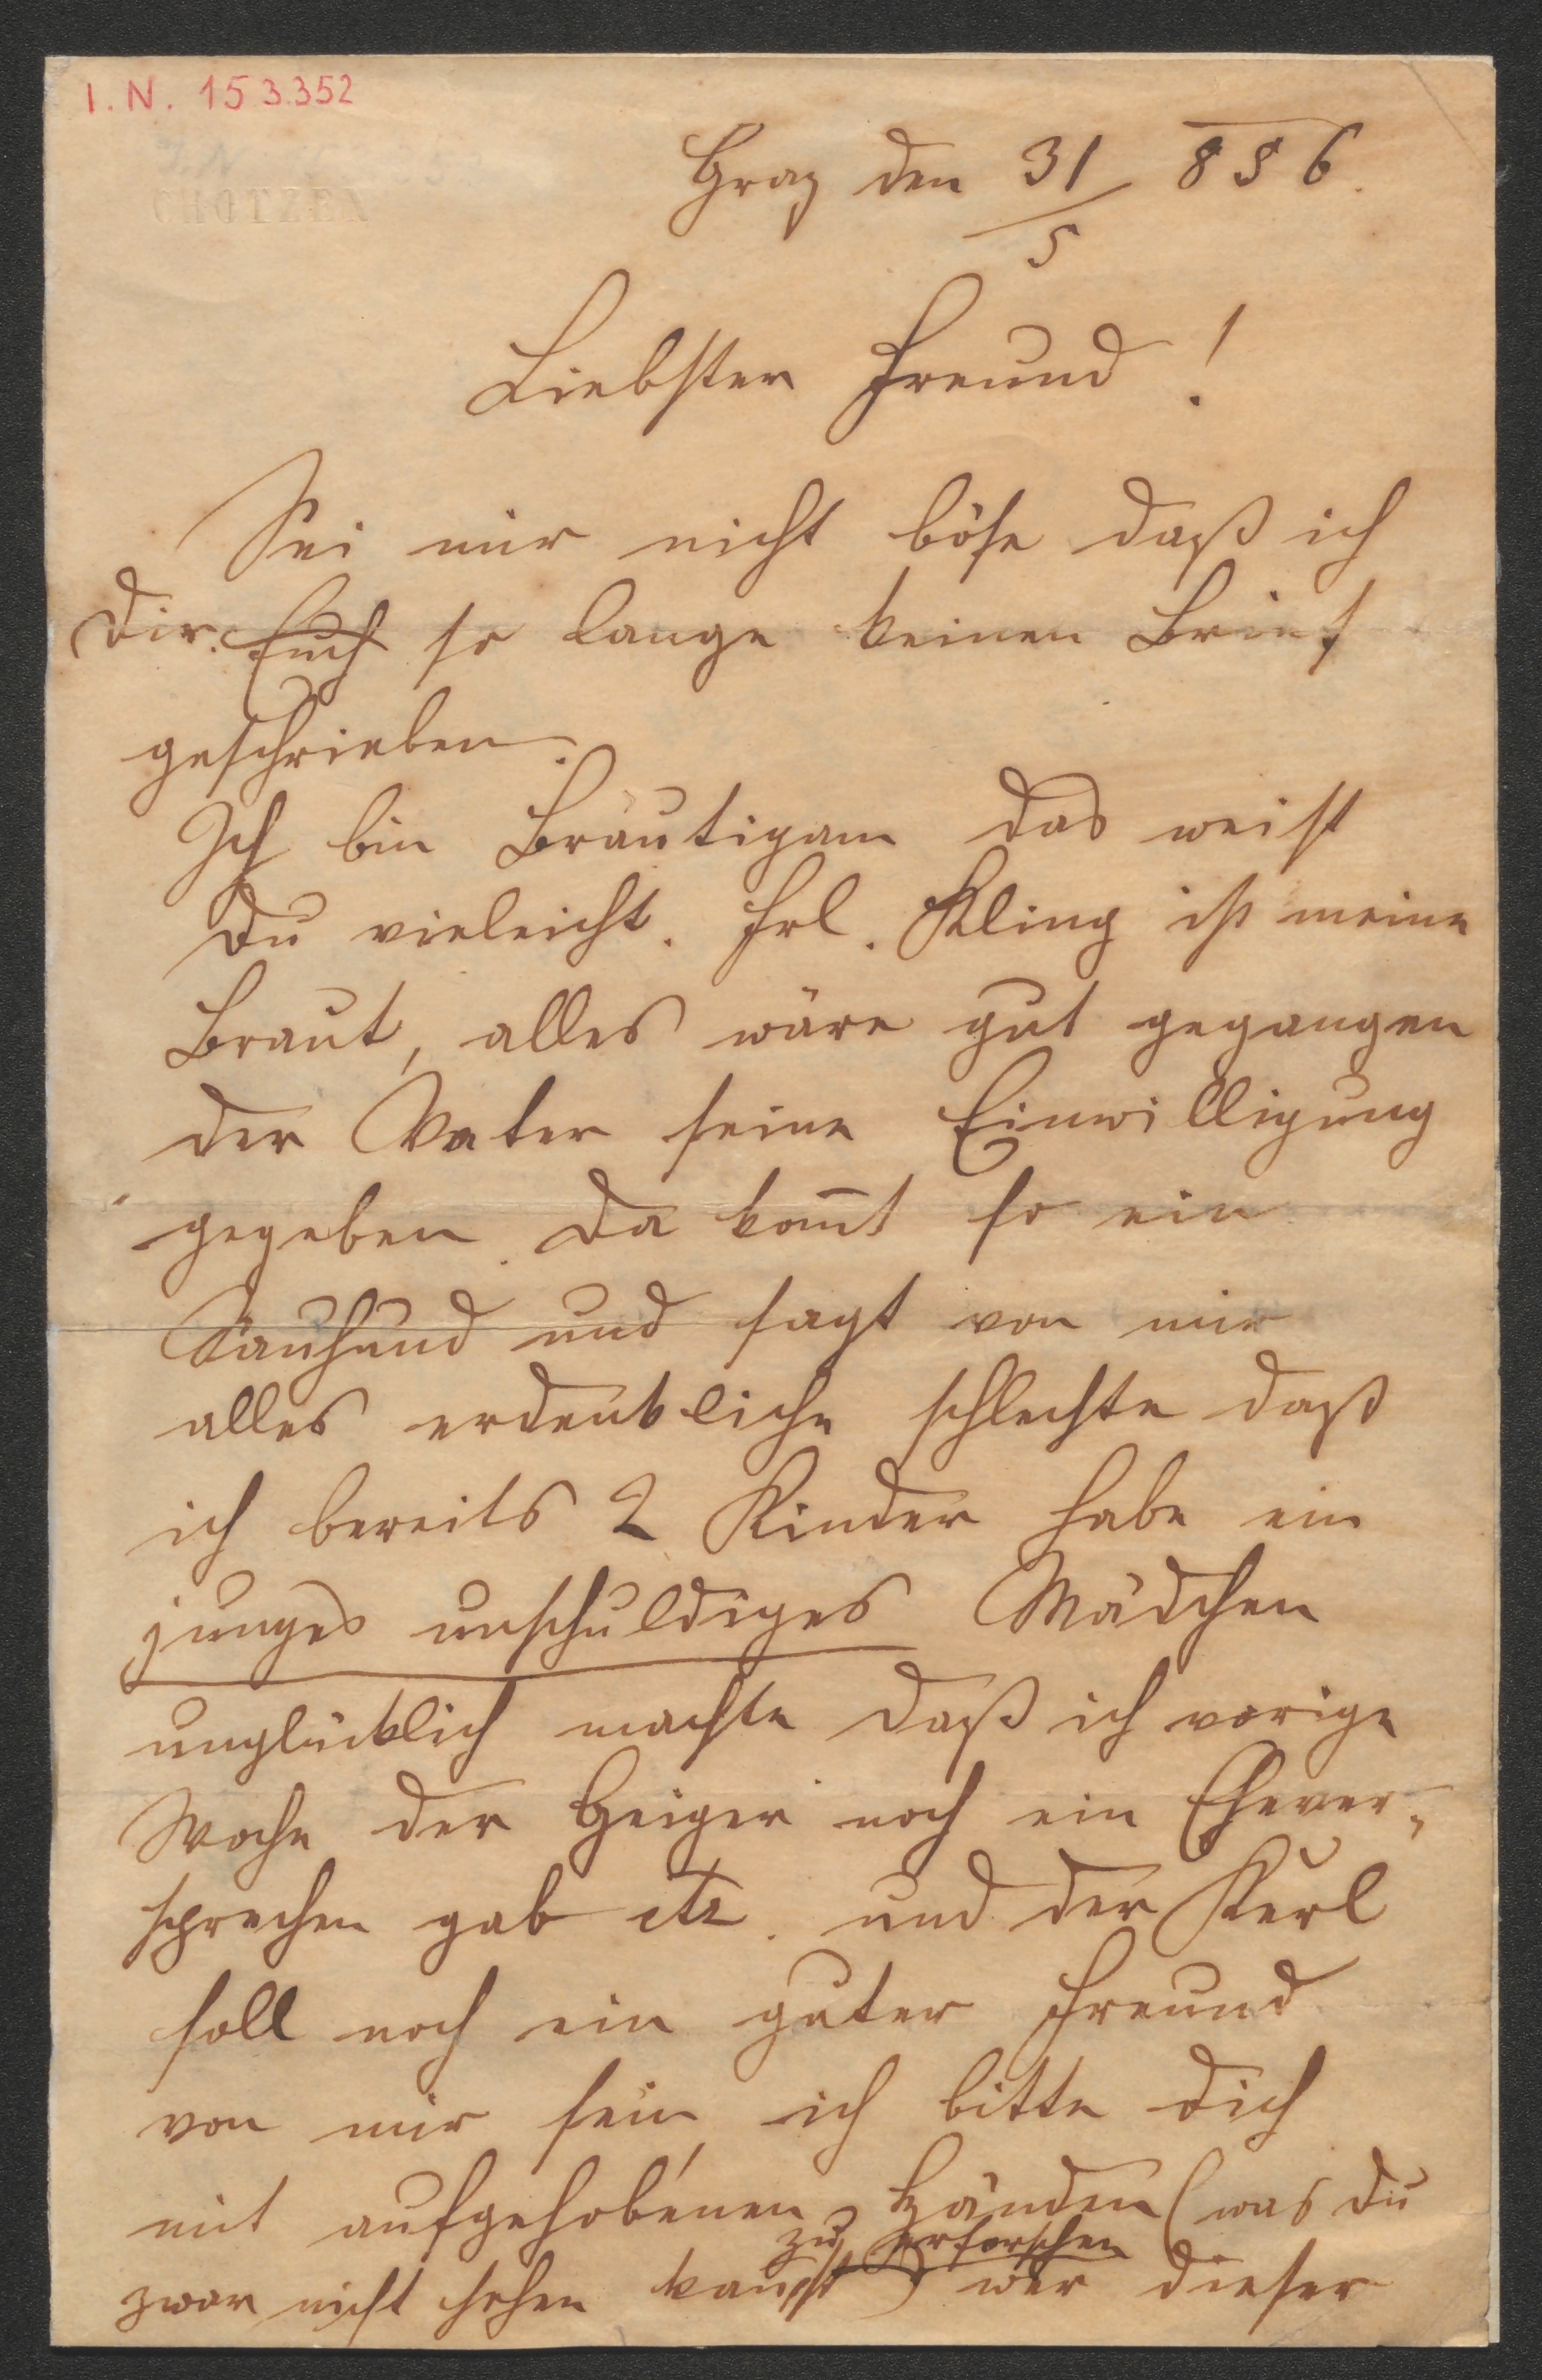 I. N. 153.352
CHOTZEN
Graz den 31/5 886.
Liebster Freund!
Sei mir nicht böse daß ich
Dir. Euch so lange keinen Brief
geschrieben.
Ich bin Bräutigam das weist
Du vieleicht. Frl. Kling ist meine
Braut, alles wäre gut gegangen
der Vater seine Einwilligung
gegeben. Da kom̄t so ein
Sauhund und sagt von mir
alles erdenkliche schlechte daß
ich bereits 2 Kinder habe ein
junges unschuldiges Mädchen
unglücklich machte daß ich vorige
Woche der Geiger noch ein Ehever-
sprechen gab etz. und der Kerl
soll noch ein guter Freund
von mir sein, ich bitte dich
mit aufgehobenen Händen (was Du
zu erforschen
zwar nicht sehen kannst) wer dieser